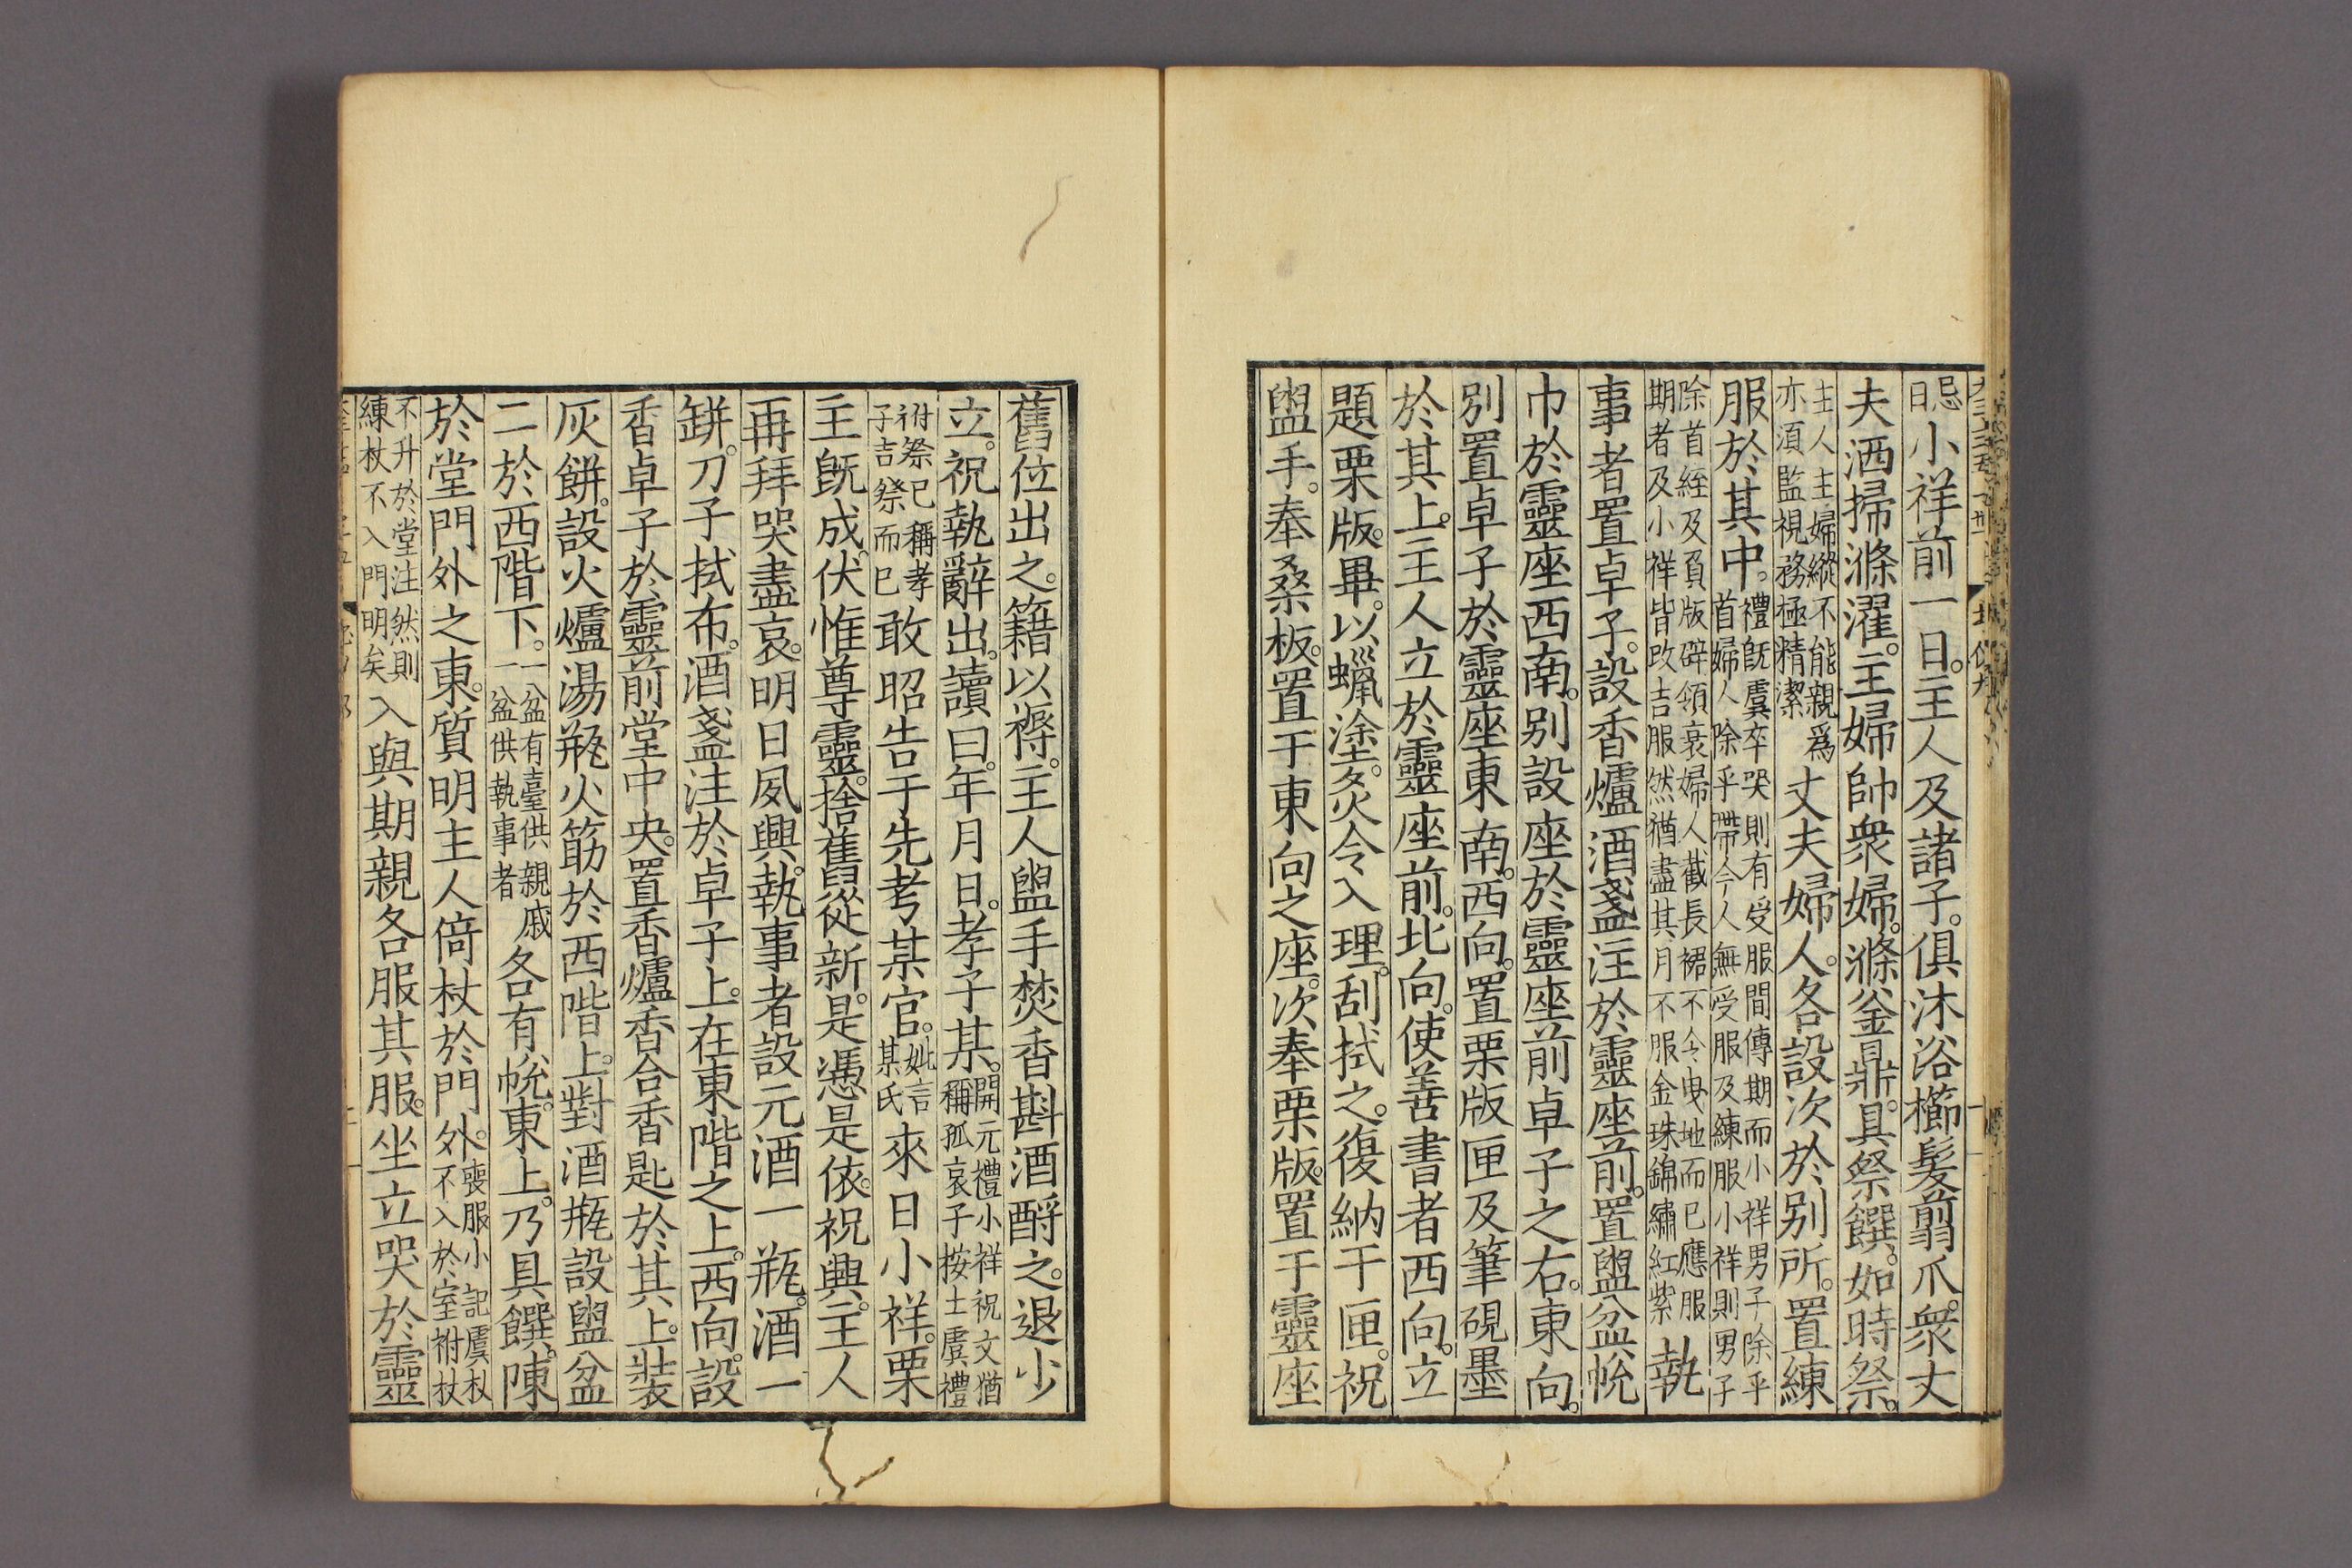 忌日小祥前一日。主人及諸子。俱沐浴櫛髮翦爪。衆丈
夫洒掃滌濯。主婦帥衆婦。滌釜鼎。具祭饌。如時祭。
主人主婦縱不能親爲亦湏監視務極精潔丈夫婦人。各設次於别所。置練
服於其中。禮旣虞卒哭則有受服間傳期而小祥男子除乎首婦人除乎帶今人無受服及練服小祥則男子
除首絰及負版辟領衰婦人截長裙不令曳地而已應服期者及小祥皆改吉服然猶盡其月不服金珠錦繡紅紫執
事者置卓子。設香爐酒盞注於靈座前。置盥盆帨
巾於靈座西南。别設座於靈座前卓子之右。東向。
别置卓子於靈座東南。西向。置栗版匣及筆硯墨
於其上。主人立於靈座前。北向。使善書者西向。立
題栗版。畢。以蠟塗。炙令入理。刮拭之。復納于匣。祝
盥手。奉桑板。置于東向之座。次奉栗版。置于靈座
舊位出之。籍以褥。主人盥手焚香斟酒酹之。退少
立。祝執辭出。讀曰。年月日。孝子某。開元禮小祥祝文猶稱孤哀子按士虞禮
祔祭已稱孝子吉祭而已敢昭告于先考某官。妣言某氏來日小祥。栗
主旣成。伏惟尊靈。捨舊從新。是憑是依。祝興。主人
再拜哭盡哀。明日夙興。執事者設元酒一瓶。酒一
缾。刀子拭布。酒盞注於卓子上。在東階之上。西向。設
香卓子於靈前堂中央。置香爐香合香匙於其上。裝
灰餅。設火爐湯瓶火筯於西階上。對酒瓶設盥盆
二於西階下。一盆有臺供親戚一盆供執事者各有帨。東上。乃具饌。陳
於堂門外之東。質明主人倚杖於門外。喪服小記虞杖不入於室祔杖
不升於堂注然則練杖不入門明矣入與期親各服其服。坐立哭於靈